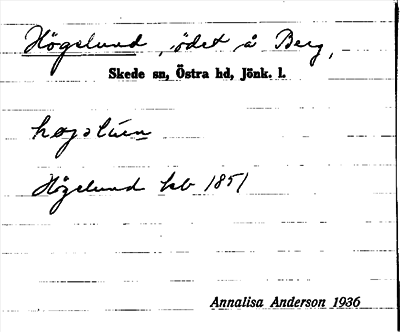 Högelund, ödet å Berg,
Skede sn, Östra hd, Jönk. l.
Högelund kb 1851
Annalisa Anderson 1936